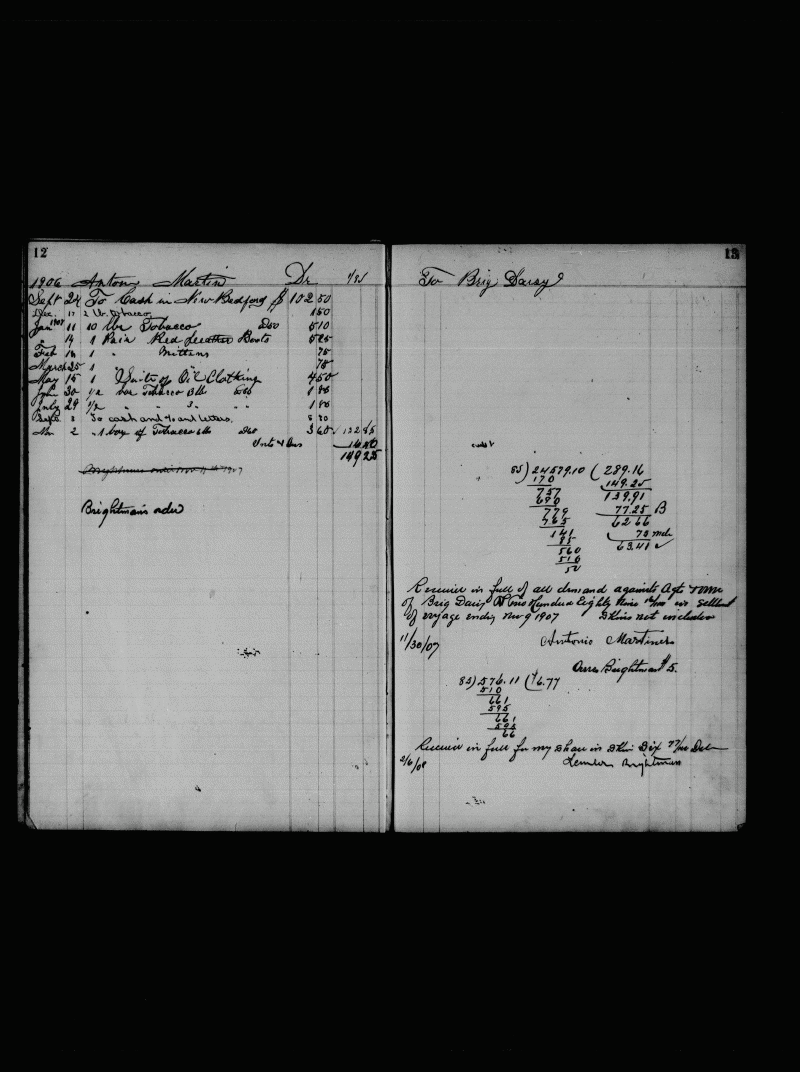 12
1906 Antone Martin Dr 1/85
Sept 24 To Cash in New Bedford $ 102 50
Dec. 17 2 lb. Tobacco 1 50
Jan 1907 11 10 lbs Tobacco D50 5 10
" 14 1 Pair Red Leather Boots 5 25
Feb 16 1 " Mittens 75
March 25 1 " " 75
May 15 1 Suits of Oil Clothing 4 50
June 30 1/2 box Tobacco 3 lb 1 80
July 29 1/2 " " 3 " " " 1 80
Sept. 3 To cash and letters. 5 30
Nov 2 1 box of Tobacco 6 lb D60 3 60 132 85
16 40
149 25
Brightman order
13
To Brig Daisy
credit
85 ) 24579.10 ( 289.16
170 149.25
757 139.91
680 77.25 B
779 62 66
765 75
141 63.41
85
560
510
50
Received in full of all demand against Agts & Owners
of Brig Daisy One Hundred Eighty Nine 16/100 in settlement
of voyage ending Nov 9 1907 Skins not included
11/30/07 Antonio Martines
Owes Brightman $5.
85 ) 576.11 ( $6.77
510
661
595
661
595
66
Received in full for my share in Skins Six 77/100 Dols
2/6/08 Brightman